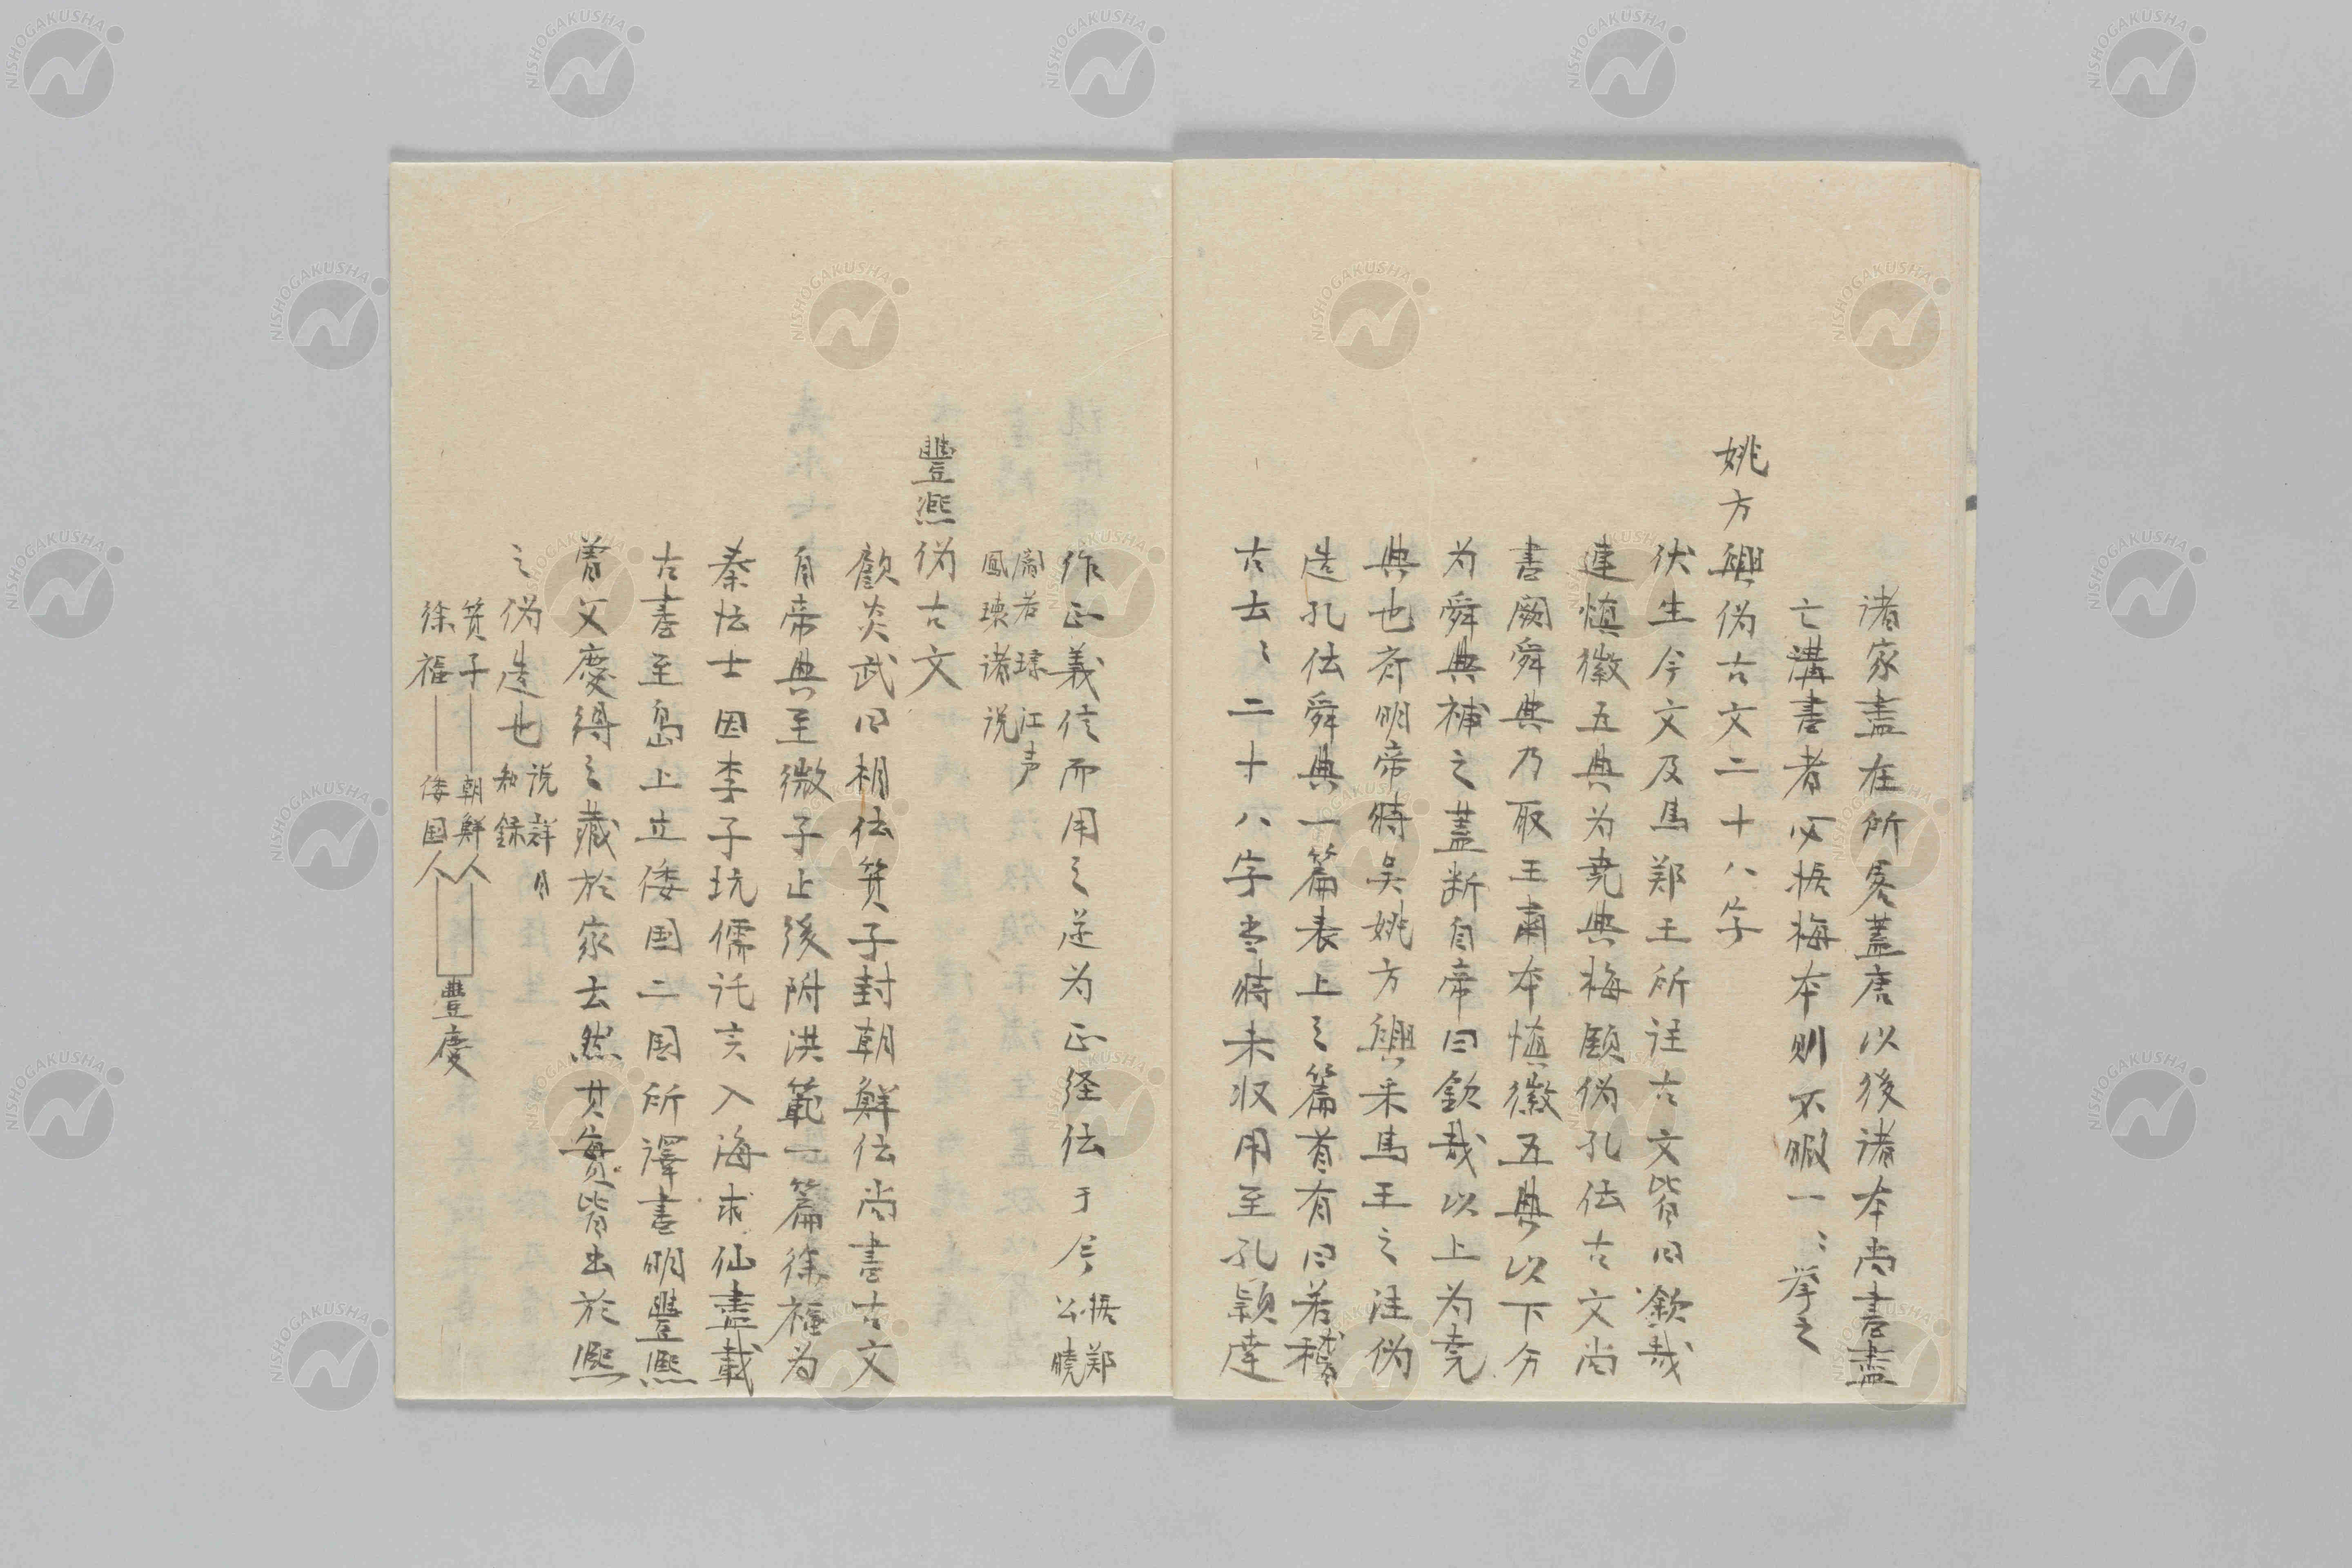 諸家盡在所畧蓋唐以後諸本尚書盡
亡講書者必拠梅本則不暇一〻挙之
姚方興偽古文二十八字
伏生今文及馬郑王所註古文皆曰欽哉
連慎徽五典为尭典梅頤偽孔伝古文尚
書厥舜典乃取王肅本慎徽五典以下分
为舜典補之蓋断自帝曰欽哉以上为尭
典也斉明帝時吴姚方興采馬王之注偽
造孔伝舜典一篇表上之篇首有曰若稽
古云〻二十八字当時未収用至孔穎達
作正義信而用之遂为正経伝于今 拠郑公曉
閻若璩江声鳳璉諸説
豐熙偽古文
顧炎武曰相伝箕子封朝鮮伝尚書古文
自帝典至微子止後附洪範一篇徐福为
秦怯士因李子坑儒託言入海求仙盡載
古書至島上立倭国二国所譯書明豐熙
曽父慶得之藏於家云然其實皆出於熙
之偽造也 説詳日知録
箕子――朝鮮人
徐福――倭国人
豐慶
NISHOGAKUSHA